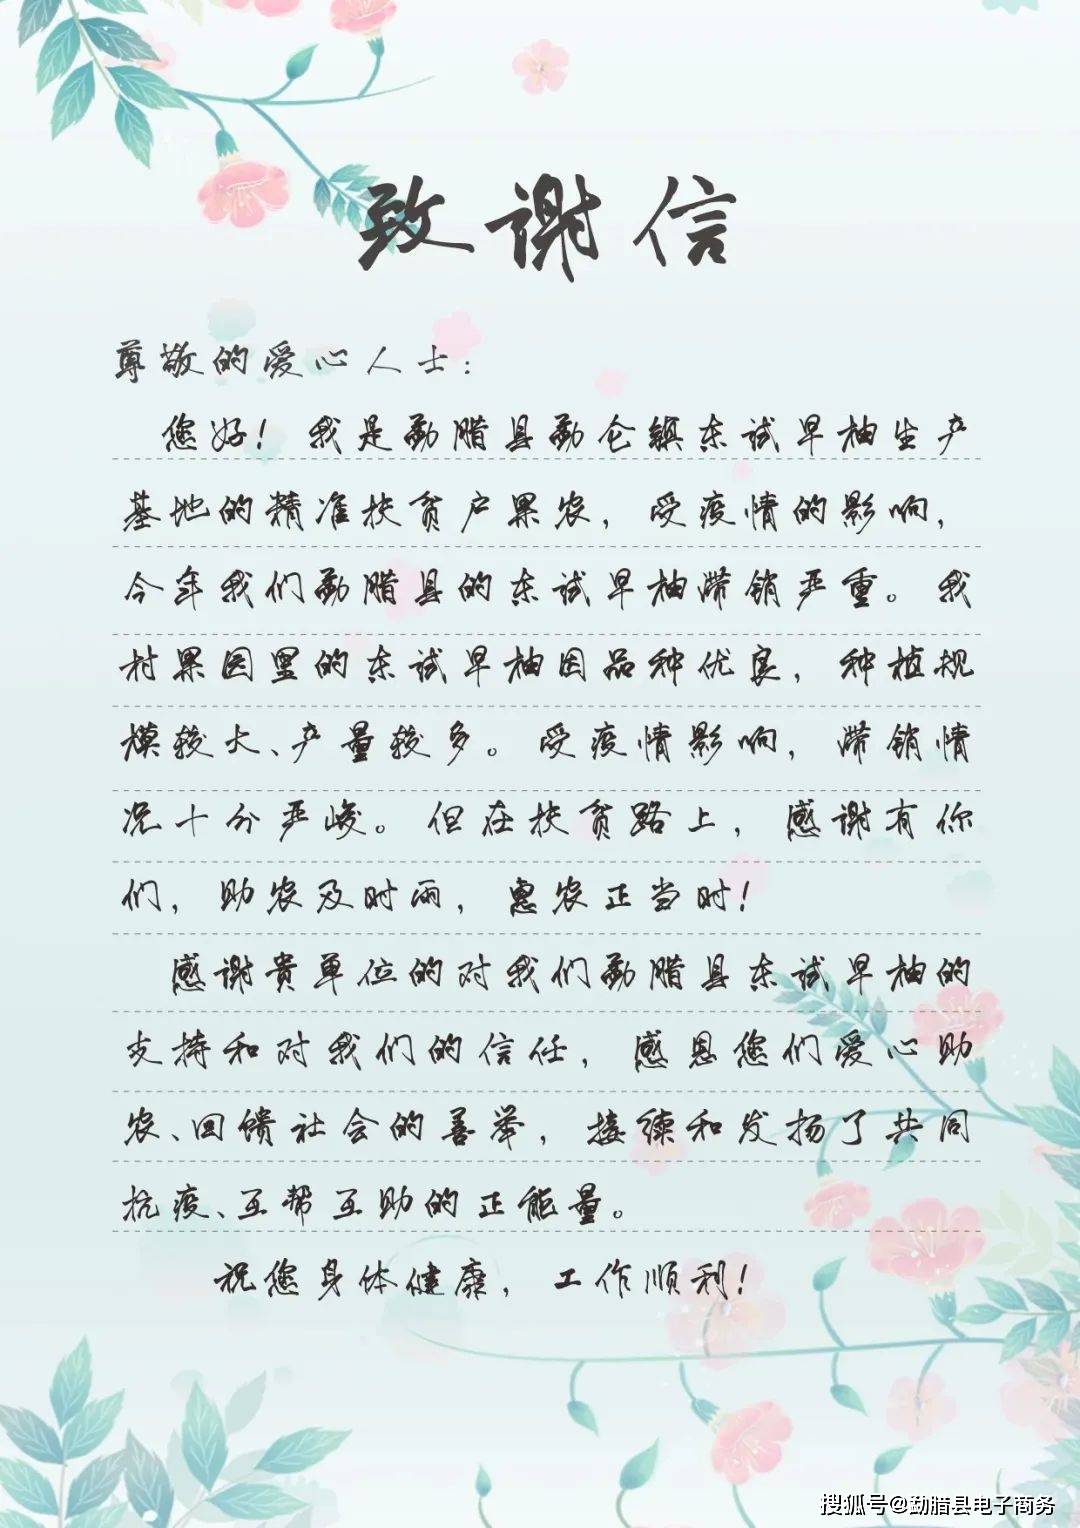 致谢信
尊敬的爱心人士：
您好！我是勐腊县勐仑镇东试早柚生产
基地的精准扶贫户果农，受疫情的影响，
今年我们勐腊县的东试早柚滞销严重。我
村果园里的东试早柚因品种优良，种植规
模较大、产量较多。受疫情影响，滞销情
况十分严峻。但在扶贫路上，感谢有你
们，助农及时雨，惠农正当时！
感谢贵单位的对我们勐腊县东试早柚的
支持和对我们的信任，感恩您们爱心助
农、回馈社会的善举，接续和发扬了共同
抗疫、互帮互助的正能量。
祝您身体健康，工作顺利！
搜狐号@勐腊县电子商务